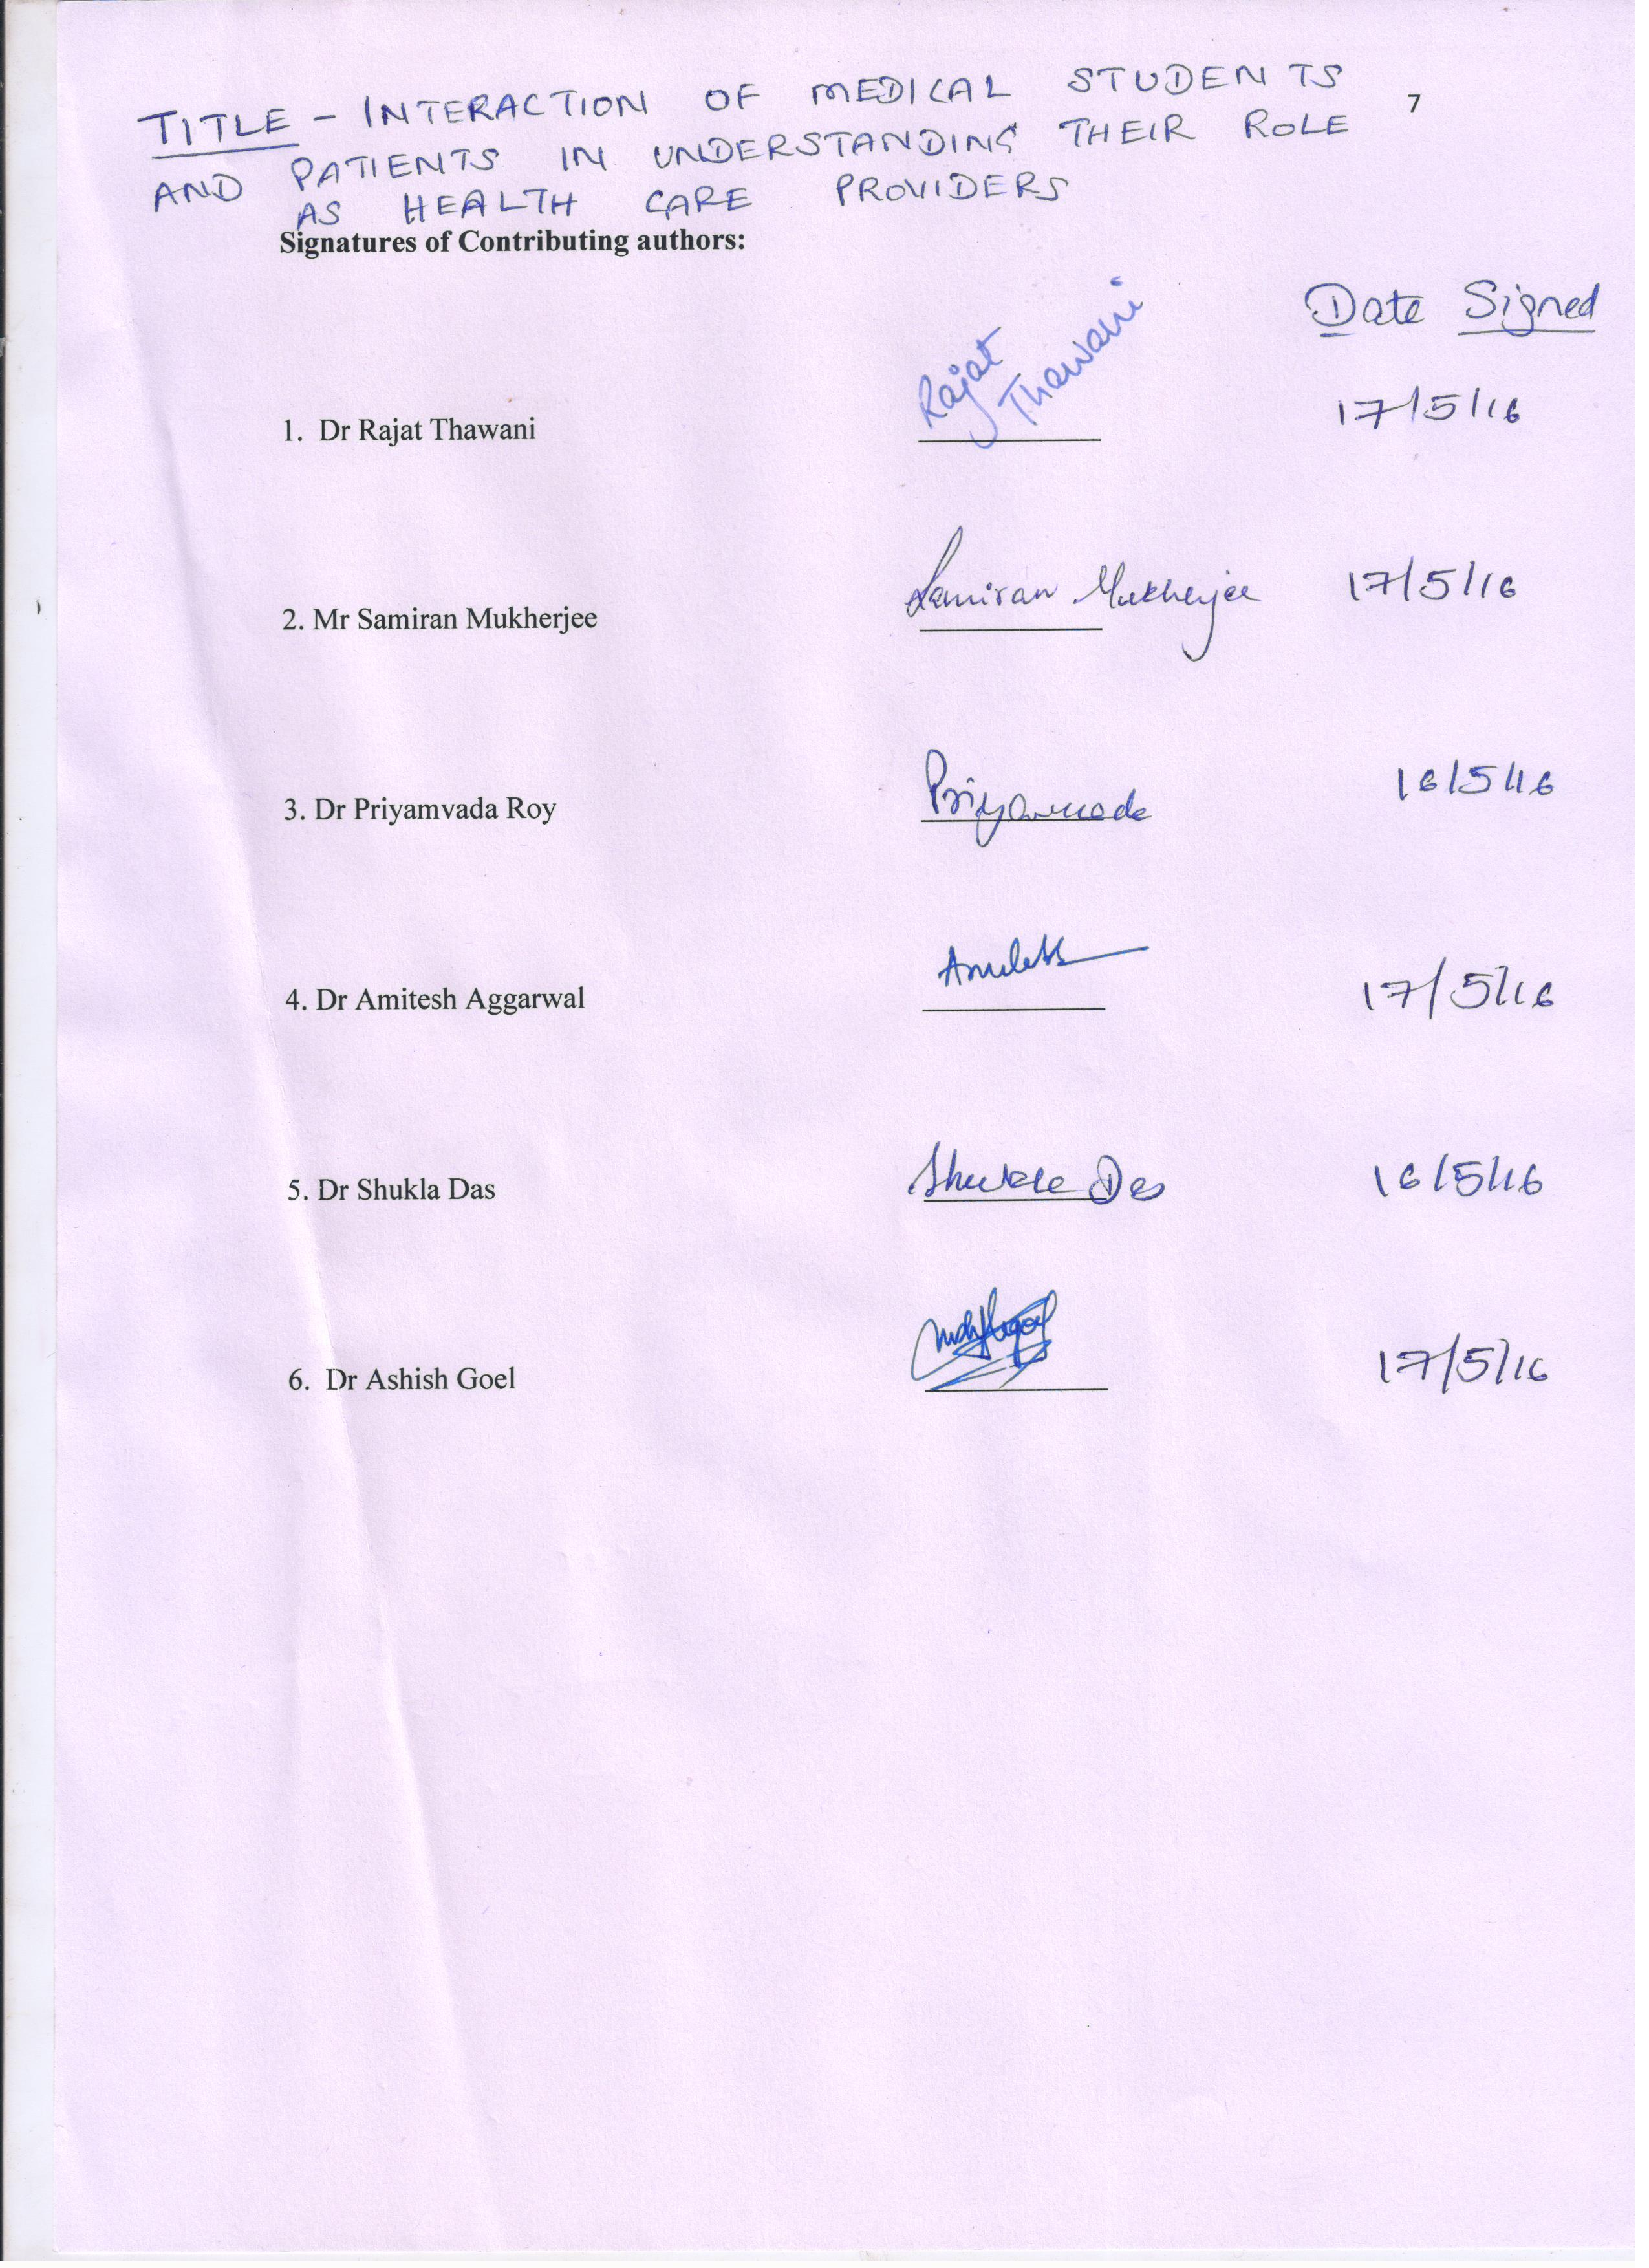 TITLE - INTERACTION OF MEDICAL STUDENTS
7
AND PATIENTS IN UNDERSTANDING THEIR ROLE
AS HEALTH CARE PROVIDERS
Signatures of Contributing authors:
Date Signed
1. Dr Rajat Thawani Rajat Thawani 17/5/16
2. Mr Samiran Mukherjee Samiran Mukherjee 17/5/16
3. Dr Priyamvada Roy Priyamvada 16/5/16
4. Dr Amitesh Aggarwal 17/5/16
5. Dr Shukla Das Shukla Das 16/5/16
6. Dr Ashish Goel 17/5/16